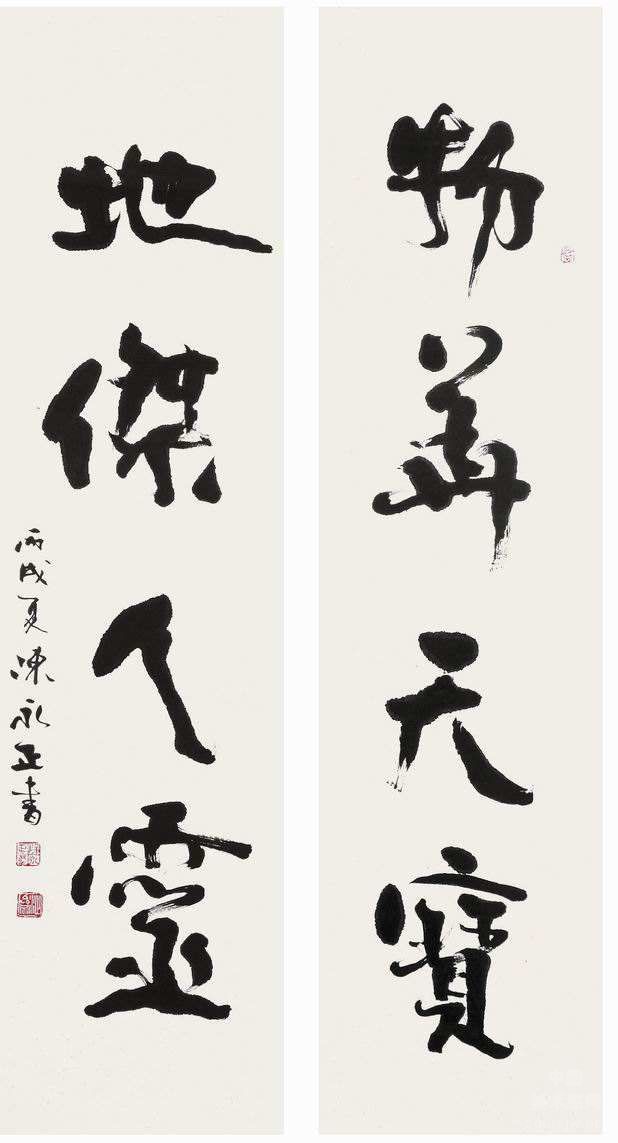 物華天寶
地傑人靈
丙戌夏陳永正書